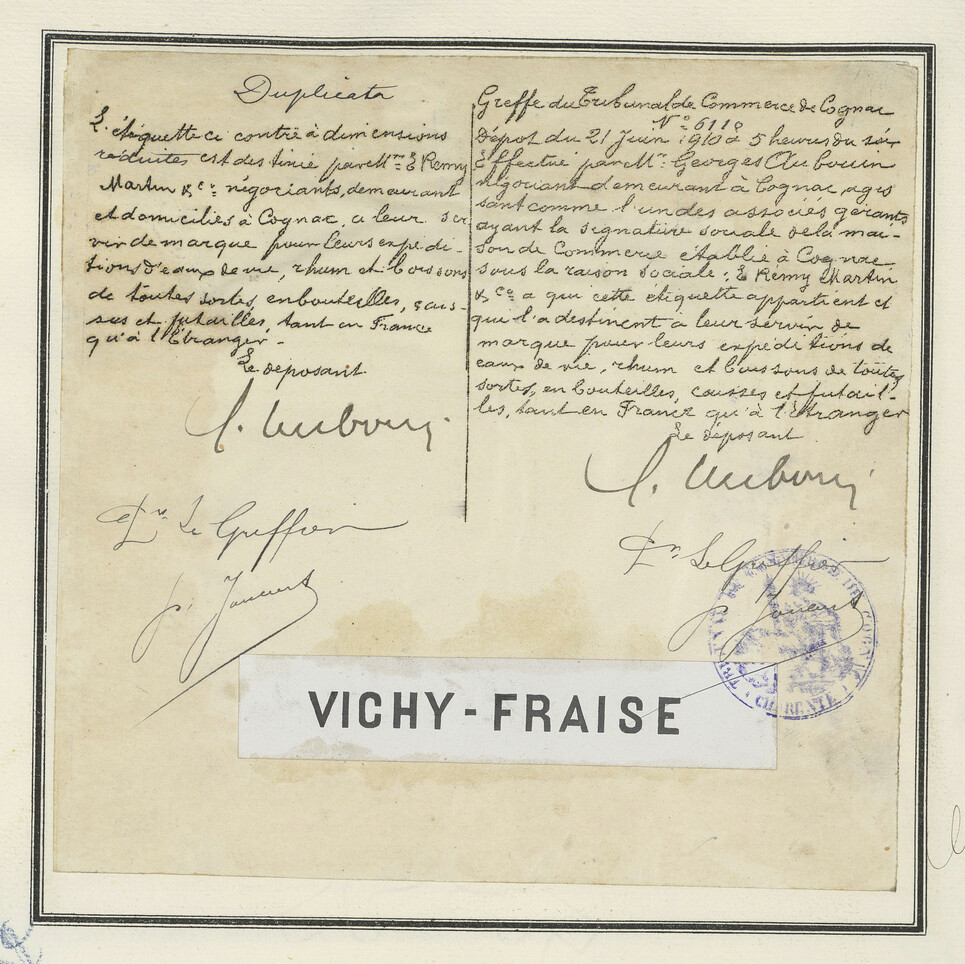 Duplicata
L'étiquette ci contre à dimensions
réduites est destinée par Mrs E. Remy
Martin & Co négociants, demeurant
et domiciliés à Cognac, a leur ser
vir de marque pour leurs expédi-
tions d'eaux de vie, rhum et boissons
de toutes sortes, en bouteilles, cais-
ses et futailles, tant en France
qu'à l'Etranger -
Le déposant
Greffe du Tribunal de Commerce de Cognac
No 6118
Dépot du 21 Juin 1910 à 5 heures du soir
Effectué par Mr Georges Aubouin
négociant demeurant à Cognac, agis
sant comme l'un des associés gérants
ayant la signature sociale de la mai-
son de Commerce établie à Cognac
sous la raison sociale: E. Remy Martin
& Co a qui cette étiquette appartient et
qui l'a destinent a leur servir de
marque pour leurs expéditions de
eaux de vie, rhum et boissons de toutes
sortes, en bouteilles, caisses et futail-
les, tant en France qu'à l'Etranger
Le déposant
Le Greffier
Le Greffier
TRIBUNAL DE COMMERCE DE COGNAC
(CHARENTE)
VICHY-FRAISE